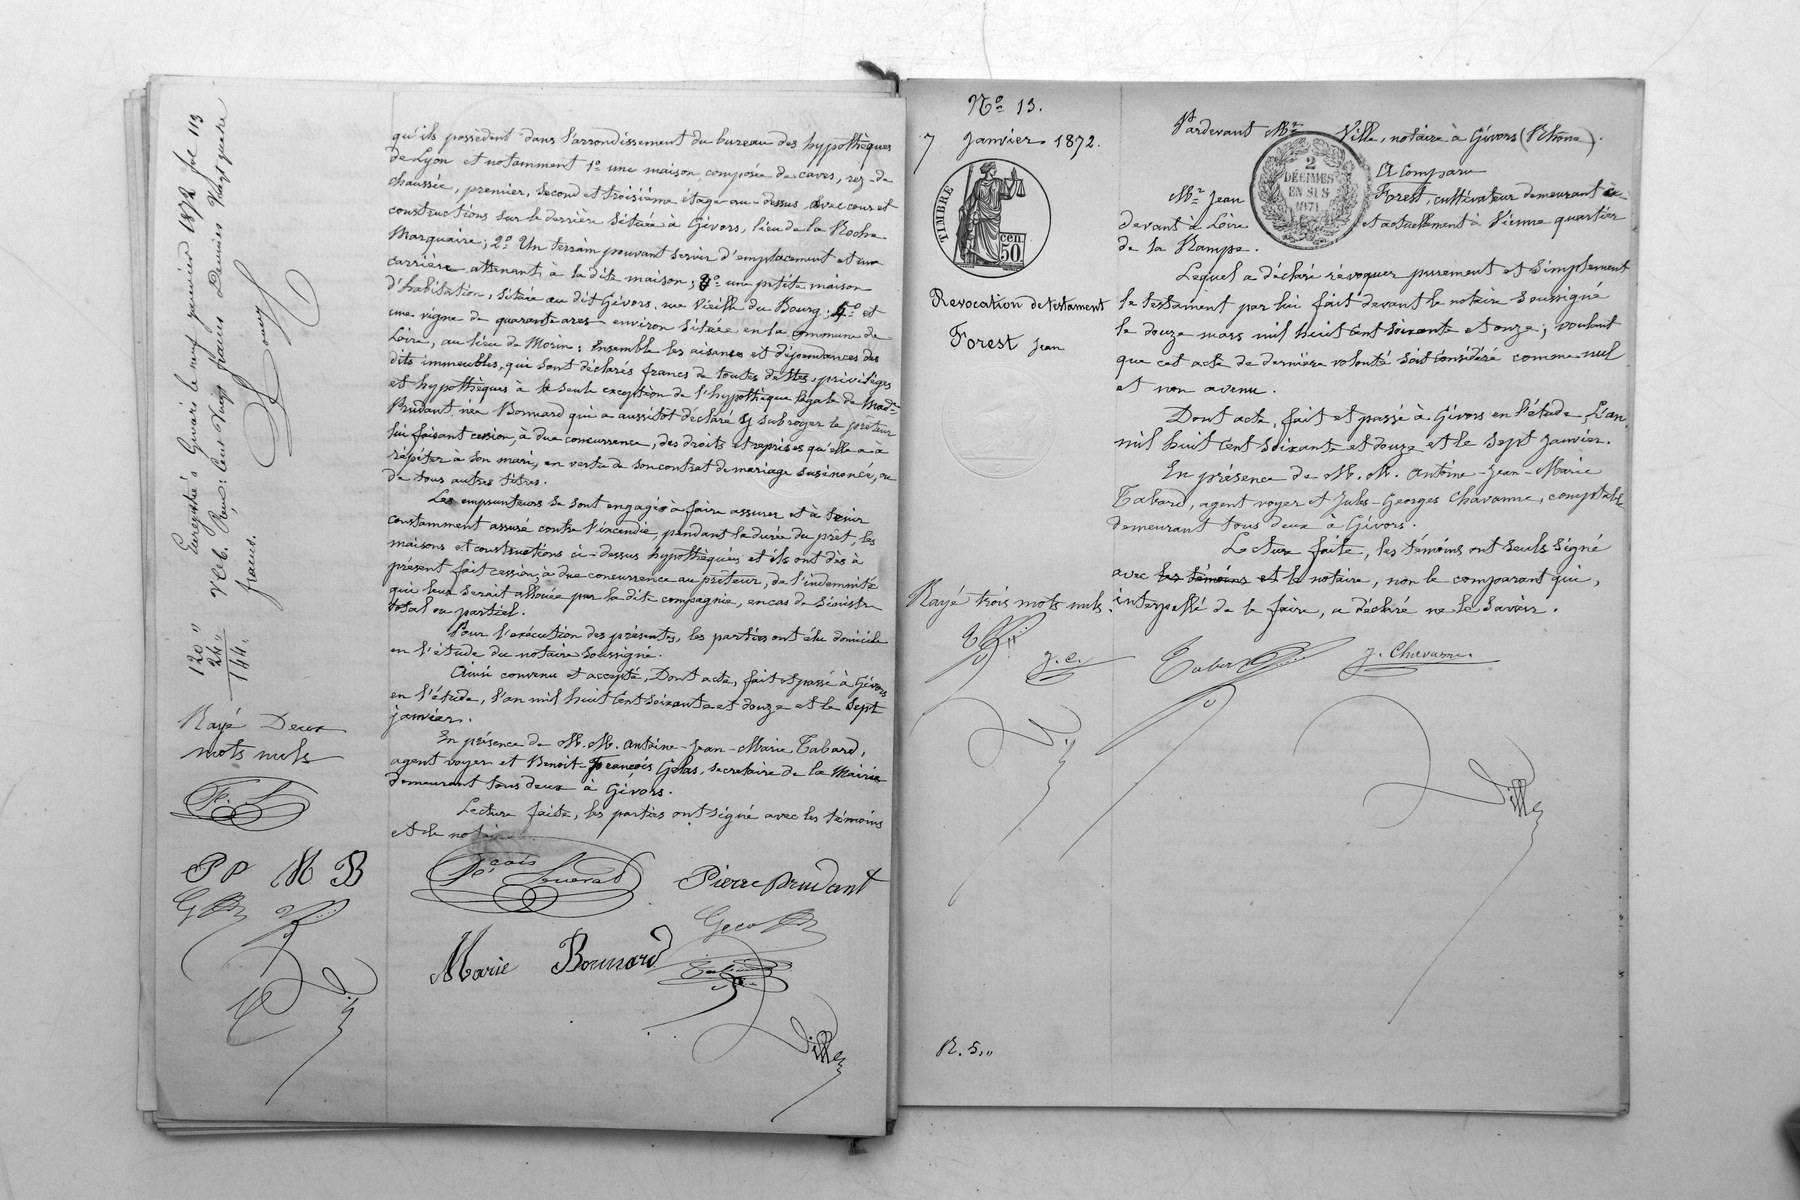 qu'ils possèdent dans l'arrondissement du bureau des hypothèques
de Lyon et notamment 1º une maison composée de caves, rez-de
chaussée, premier, second et troisième étage au-dessus avec cour et
constructions sur le derrière située à Givors, lieu de la Roche
Marquaire; 2º Un terrain pouvant servir d'emplacement et une
carrière attenant à la dite maison; 3º une petite maison
d'habitation, située au dit Givors, rue Vieille du Bourg; 4º et
une vigne de quarante ares environ située en la commune de
Loire, au lieu de Morin; Ensemble les aisances et dépendances des
dits immeubles, qui sont déclarés francs de toutes dettes, privilèges
et hypothèques à la seule exception de l'hypothèque légale de Made
Prudant née Bonnard qui a aussitôt déclaré y subroger le prêteur
lui faisant cession, à due concurrence, des droits et reprises qu'elle a à
répéter à son mari, en vertu de son contrat de mariage susénoncé, ou
de tous autres titres.
Les emprunteurs se sont engagés à faire assurer et à tenir
constamment assuré contre l'incendie, pendant la durée du prêt, les
maisons et constructions ci-dessus hypothéquées et ils ont dès à
présent fait cession, à due concurrence au prêteur, de l'indemnité
qui leur serait allouée par la dite compagnie, en cas de sinistre
total ou partiel.
Pour l'exécution des présentes, les parties ont élu domicile
en l'étude du notaire soussigné.
Ainsi convenu et accepté, Dont acte, fait et passé à Givors
en l'étude, l'an mil huit cent soixante et douze et le sept
janvier.
En présence de M.M. Antoine-Jean-Marie Tabard,
agent voyer et Benoit-François Gelas, secretaire de la Mairie
demeurant tous deux à Givors.
Lecture faite, les parties ont signé avec les témoins
et le notaire.
Pierre Prudant
Marie Bonnard
Ville
Enregistré à Givors le neuf janvier 1872 fol 113
V. c. 6. Reçu: cent vingt francs Decimes Vingt quatre
francs.
120 "
24 "
144 "
Rayé Deux
mots nuls
P P M B
Nº 13.
7 Janvier 1872.
TIMBRE
50 cen.
Revocation de testament
Forest Jean
Pardevant Me Ville, notaire à Givors (Rhône).
2
DÉCIMES
EN SUS
1871
A Comparu
Mr Jean Forest, cultivateur demeurant ci-
devant à Loire et actuellement à Vienne quartier
de la Rampe.
Lequel a déclaré révoquer purement et simplement
le testament par lui fait devant le notaire soussigné
le douze mars mil huit cent soixante et onze; voulant
que cet acte de dernière volonté soit considéré comme nul
et non avenu.
Dont acte, fait et passé à Givors en l'étude L'an
mil huit cent soixante et douze et le sept janvier.
En présence de M.M. Antoine-Jean-Marie
Tabard, agent voyer et Jules-Georges Chavanne, comptable
demeurant tous deux à Givors.
Lecture faite, les témoins ont seuls signé
avec les témoins et le notaire, non le comparant qui,
interpellé de le faire, a déclaré ne le savoir.
Rayé trois mots nuls.
J. C.
Tabard
J. Chavanne
Ville
R. 5."